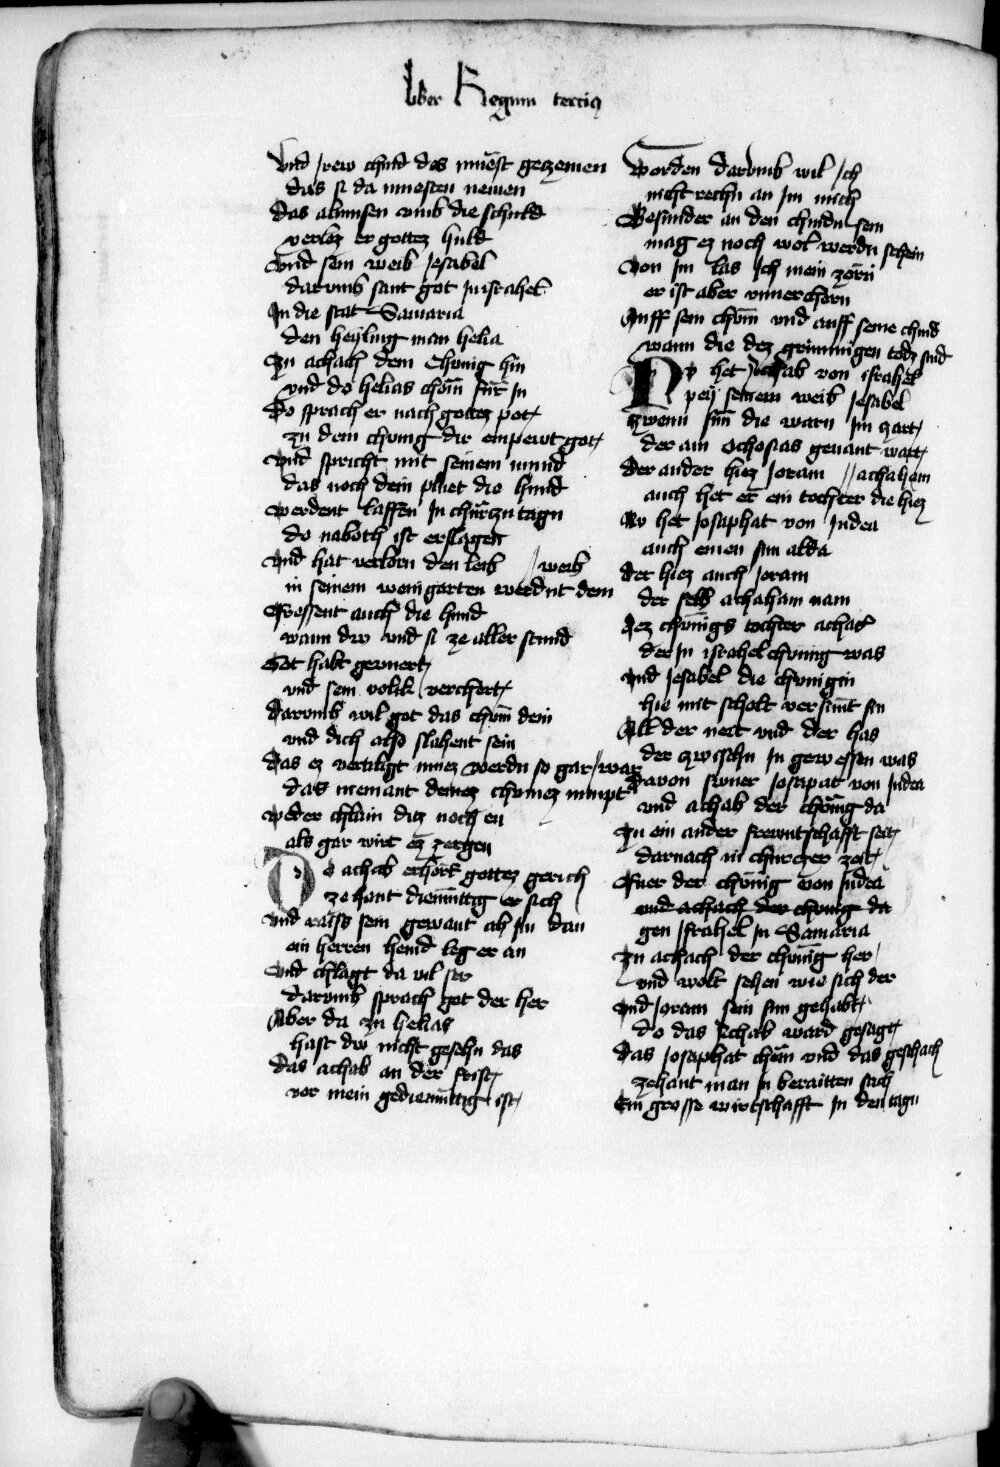 liber Regum tercius
Vnd Jrew chind das muest geczemen
das si da muesten nemen
das almusen vmb die schuld
verlos er gottez huld
Vnd sein weib Jesabel
darvmb sant got Jn israhel
Jn die stat Samaria
den heyling man helia
Zu achab dem Chunig hin
vnd do helias chom für Jn
do sprach er nach gottez pot
zu dem chunig dir empewt got
Vnd spricht mit seinem mund
das noch dein pluet die hund
Werdent laffen Jn churczn tagn
do naboth ist erslagen
Vnd hat verlorn den leib / weib
in seinem weingarten werdnt dem
Gfressent auch die hund
wann dw vnd si ze aller stund
Got habt geunert
vnd sein volkh verchert
Darvmb wil got das chom dein
vnd dich also slahent sein
Das ez vertiligt muez werdn so gar / war
das niemant deinez chunnez nimpt
Weder chlain diz noch en
als gar wirt ez zergen
Do achab erhort gottez gerich
ze hant diemuttig er sich
Vnd raiss sein gewant ab Jm dan
ein herren hemd leg er an
Vnd chlagt da vil ser
darvmb sprach got der her
Aber da zu helias
hast dw nicht gesehn das
das achab an der frist
vor mein gediemuttig ist
Worden darvmb wil Jch
nicht rechn an Jm mich
Besunder an den chindn sein
mag ez noch wol werdn schein
Von Jm las Jch mein zorn
er ist aber vnuerchorn
Auff sein chom vnd auff seine chind
wann die dez grimmigen todz sind
Nv het Achab von israhel
pey seinem weib Jesabel
Zwenn sun die warn Jm zart
der ain ochosias genant wart
der ander hiez Joram // achaham
auch het er ein tochter die hiez
Nv het Josaphat von Judea
auch einen sun alda
der hiez auch Joram
der selb achaham nam
Dez chunigs tochter achab
der Jn israhel chunig was
Vnd Jesabel die chunigin
hie mit scholt versunt sin
All der neit vnd der has
der zwischn Jn gewessen was
Davon swuer Josapat von Judea
vnd achab der chunig da
Zu ein ander frewntschafft seit
darnach in churczer zeit
Fuer der chunig von Judea
vnd achach der chunig da
gen Jsrahel Jn Samaria
Zu achach der chunig her
vnd wolt sehen wie sich der
Vnd Joram sein sun gehabt
do das Achab ward gesagt
Das Josaphat chom vnd das geschach
zehant man Jn beraitten sach
Ein grosse wirtschafft Jn den tagn